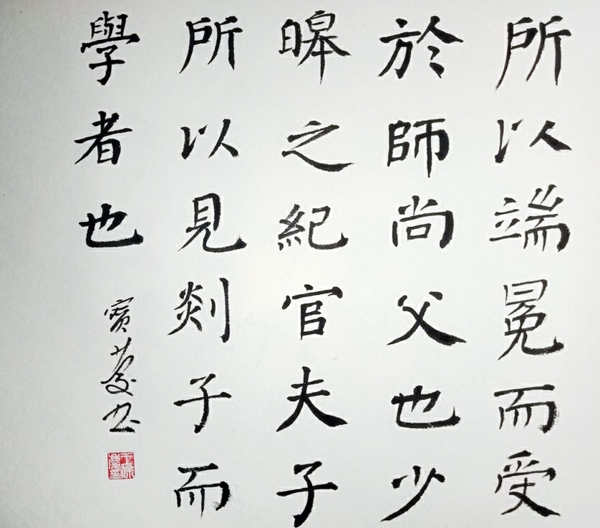 所以端冕而受
於師尚父也少
暤之紀官夫子
所以見剡子而
學者也